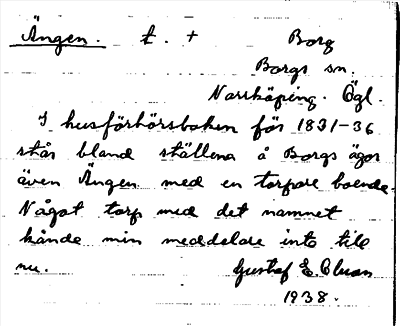 Ängen. t. +    Borg
Borgs sn.
Norrköping. Ögl.
I husförhörsboken för 1831-36
står bland ställena å Borgs ägor
även Ängen med en torpare boende.
Något torp med det namnet
kände min meddelare inte till
nu.    Gustaf E. Cluan
1938.